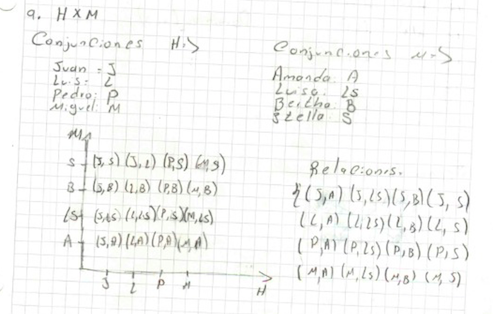 a. H X M
Conjunciones H->
Juan = J
Luis = L
Pedro: P
Miguel: M
Conjunciones M->
Amanda: A
Luisa: LS
Bertha: B
Stella: S
M
S (J,S) (J,L) (P,S) (M,S)
B (J,B) (L,B) (P,B) (M,B)
LS (J,LS) (L,LS) (P,S) (M,LS)
A (J,A) (L,A) (P,A) (M,A)
J L P M H
Relaciones.
{(J,A) (J,LS) (J,B) (J,S)
(L,A) (L,LS) (L,B) (L,S)
(P,A) (P,LS) (P,B) (P,S)
(M,A) (M,LS) (M,B) (M,S)